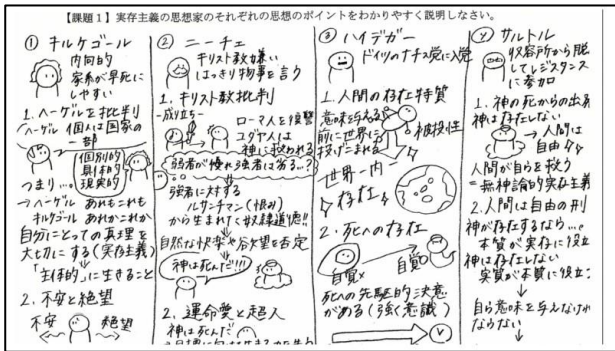 【課題1】実存主義の思想家のそれぞれの思想のポイントをわかりやすく説明しなさい。
① キルケゴール
内向的
家系が早死に
しやすい
1. ヘーゲルを批判
ヘーゲル 個人は国家の
一部
個別的
具体的
現実的
つまり…
→ヘーゲル あれもこれも
キルケゴール あれかこれか
自分にとっての真理を
大切にする(実存主義)
「主体的」に生きること
2. 不安と絶望
不安
絶望
② ニーチェ
キリスト教嫌い
はっきり物事を言う
1. キリスト教批判
-成り立ち-
ローマ人を復讐
ユダヤ人は
神に救われる
弱者が優れ強者は劣る…?
強者に対する
ルサンチマン(恨み)
から生まれた奴隷道徳!!
自然な快楽や欲望を否定
神は死んだ!!!
2. 運命愛と超人
神は死んだ
③ ハイデガー
ドイツのナチス党に入党
1. 人間の存在特質
意味を与える
前に世界に
投げこまれる
被投性
世界-内
存在
2. 死への存在
自覚×
自覚○
死への先駆的決意
がある(強く意識)
④ サルトル
収容所から脱
してレジスタンス
に参加
1. 神の死からの出発
神は存在しない
人間は
自由
人間が自らを救う
=無神論的実存主義
2. 人間は自由の刑
神が存在するなら…
本質が実存に役立
神は存在しない
実質が本質に役立:
自ら意味を与えなければ
ならない